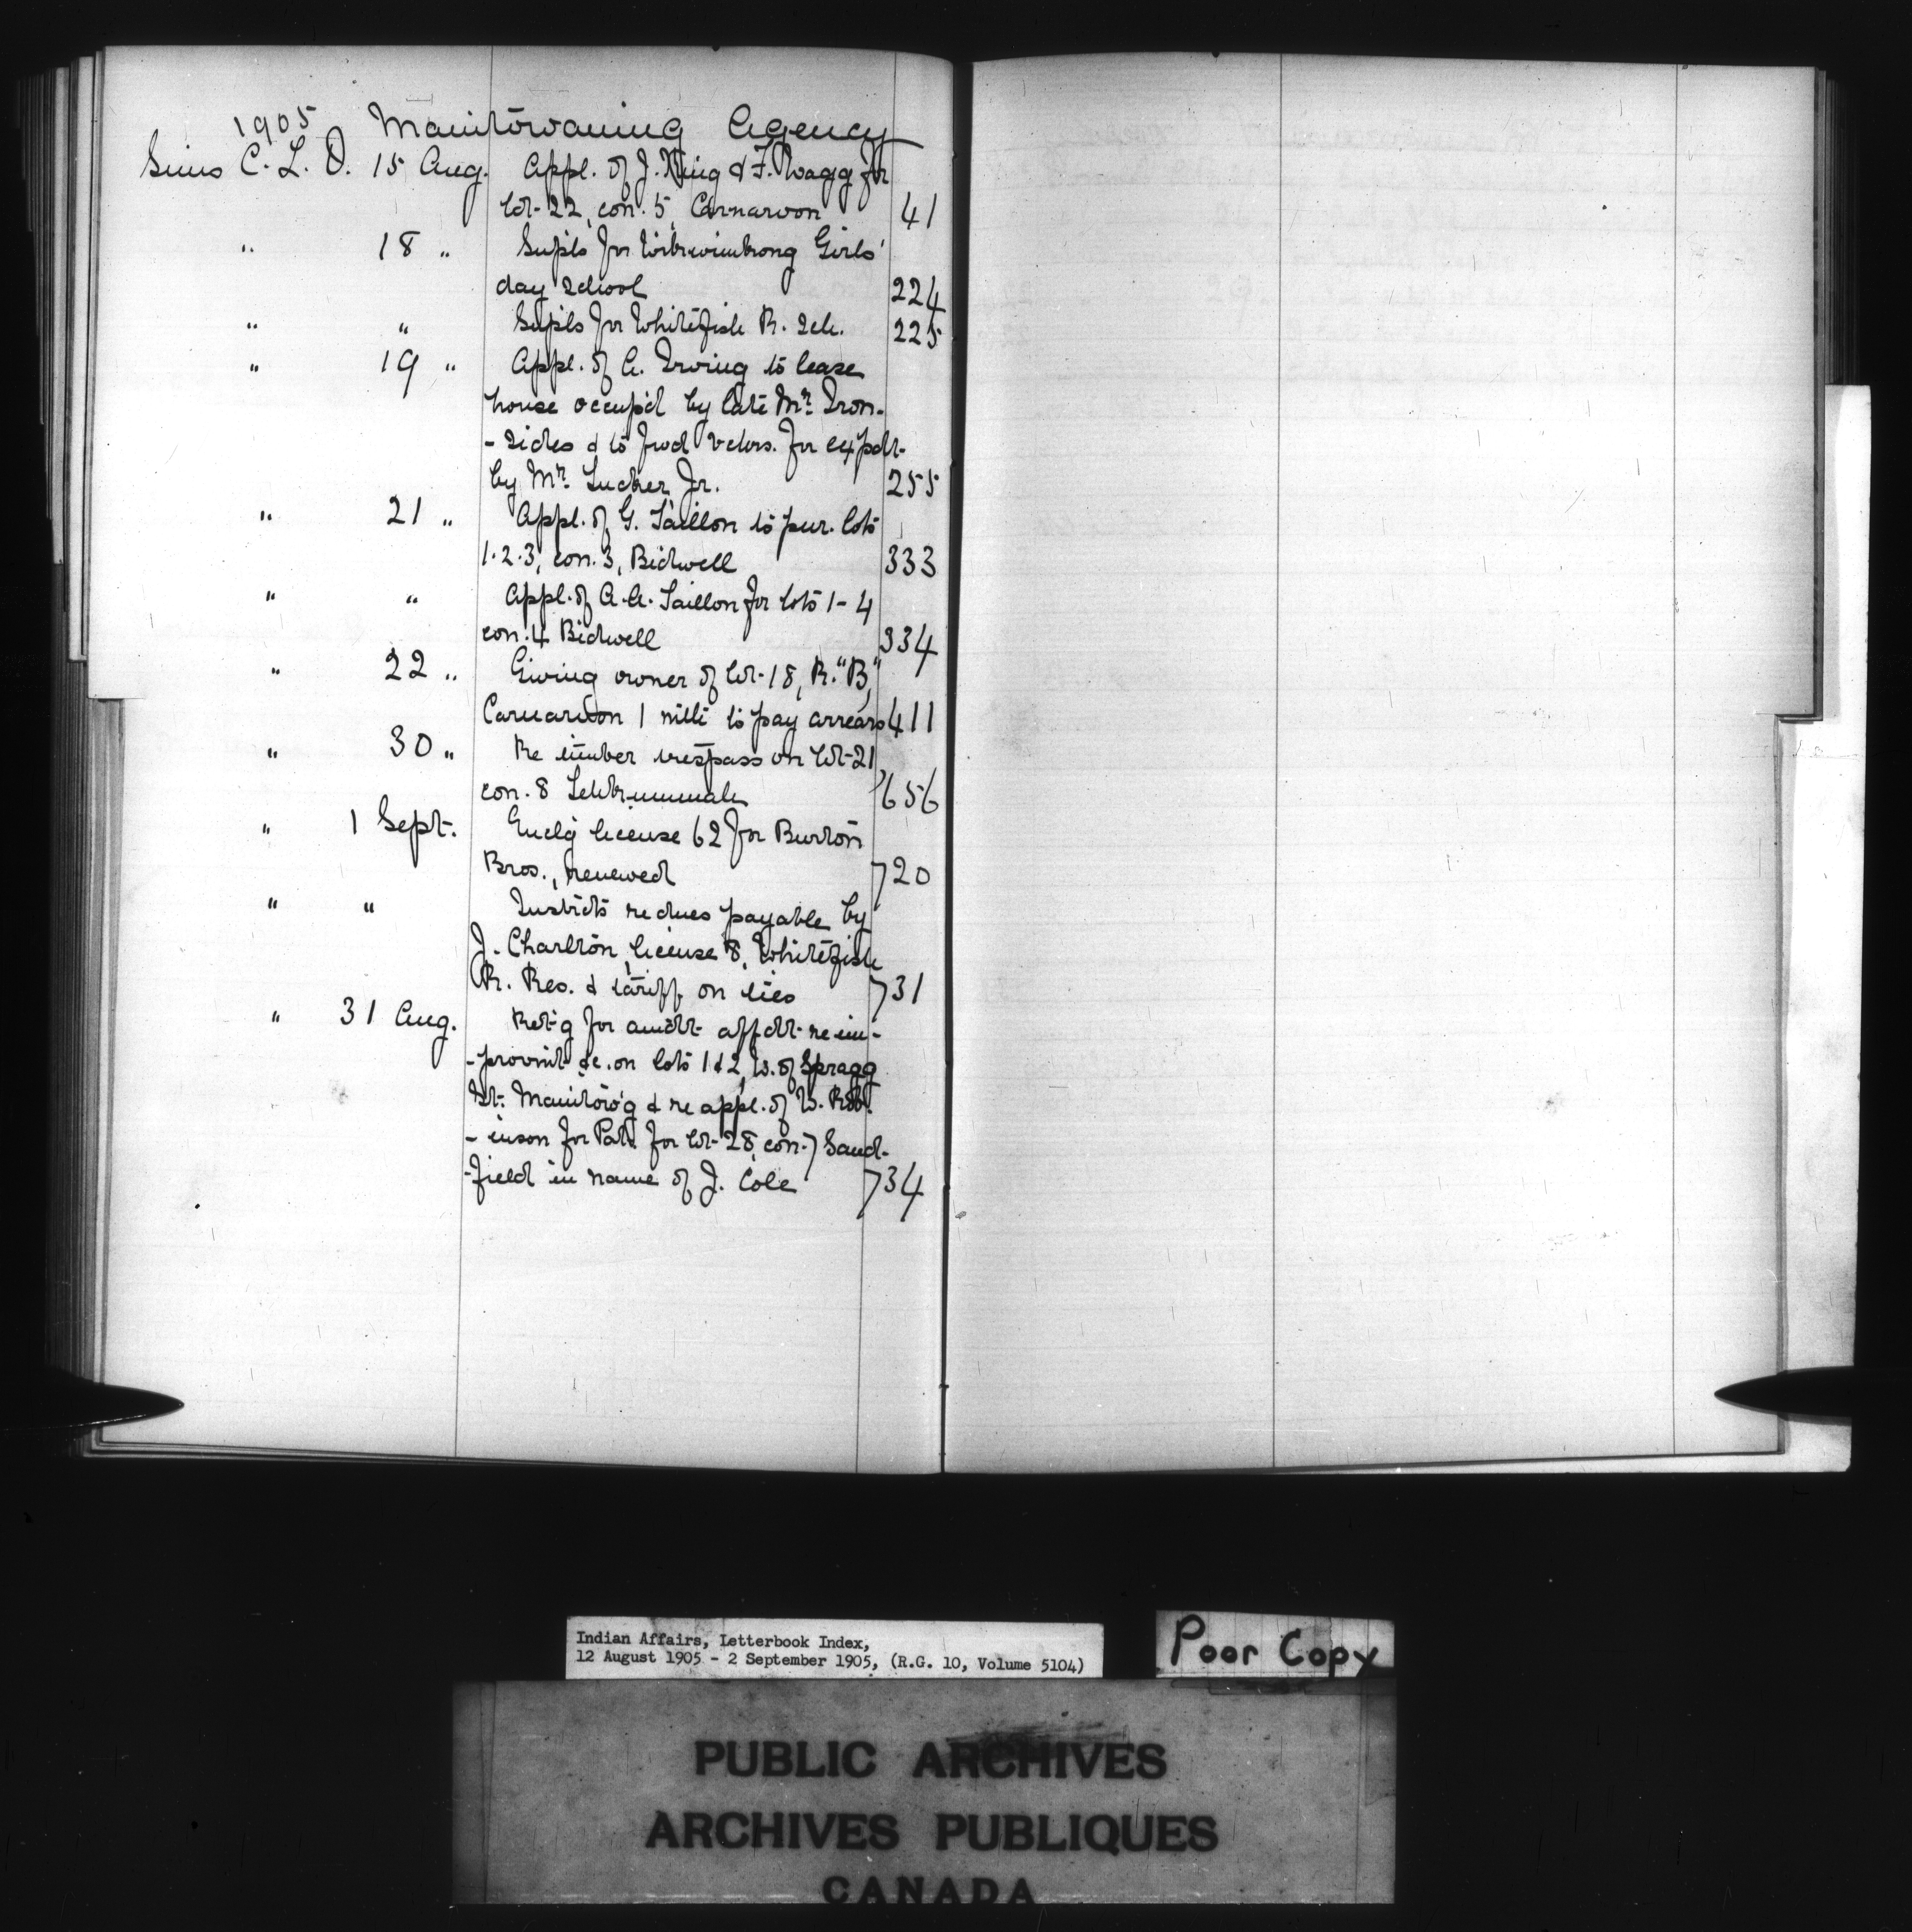 1905 Manitowaning Agency
Sims C. L. D. 15 Aug. Appl. of J. King & F. Wagg for
lot 22, con. 5, Carnarvon 41
" 18 " Supls for Wikwimkong Girls'
day school 224
" " Supls for Whitefish R. sch. 225
" 19 " Appl. of A. Irving to lease
house occup'd by late Mr. Iron-
-sides & to fwd vchrs. for expdt
by Mr. Tucker Jr. 255
" 21 " Appl. of G. Taillon to pur. lots
1.2.3, con. 3, Bidwell 333
" " Appl. of A. A. Taillon for lots 1-4
con. 4 Bidwell 334
" 22 " Giving owner of lot 18, R. "B",
Carnarvon 1 mth to pay arrears 411
" 30 " Re timber trespass on lot 21,
con. 8 Tehkummah 656
" 1 Sept. Enclg license 62 for Burton
Bros., renewed 720
" " Instrcts re dues payable by
J. Charlton, license 8, Whitefish
R. Res. & tariff on ties 731
" 31 Aug. Retg for amdt affdt re im-
-provmt &c. on lots 1 & 2, W. of Spragg
St. Manitow'g & re appl. of W. Rob-
-inson for Pat. for lot 28, con. 7 Sand-
-field in name of J. Cole 734
Indian Affairs, Letterbook Index,
12 August 1905 - 2 September 1905, (R.G. 10, Volume 5104)
Poor Copy
PUBLIC ARCHIVES
ARCHIVES PUBLIQUES
CANADA